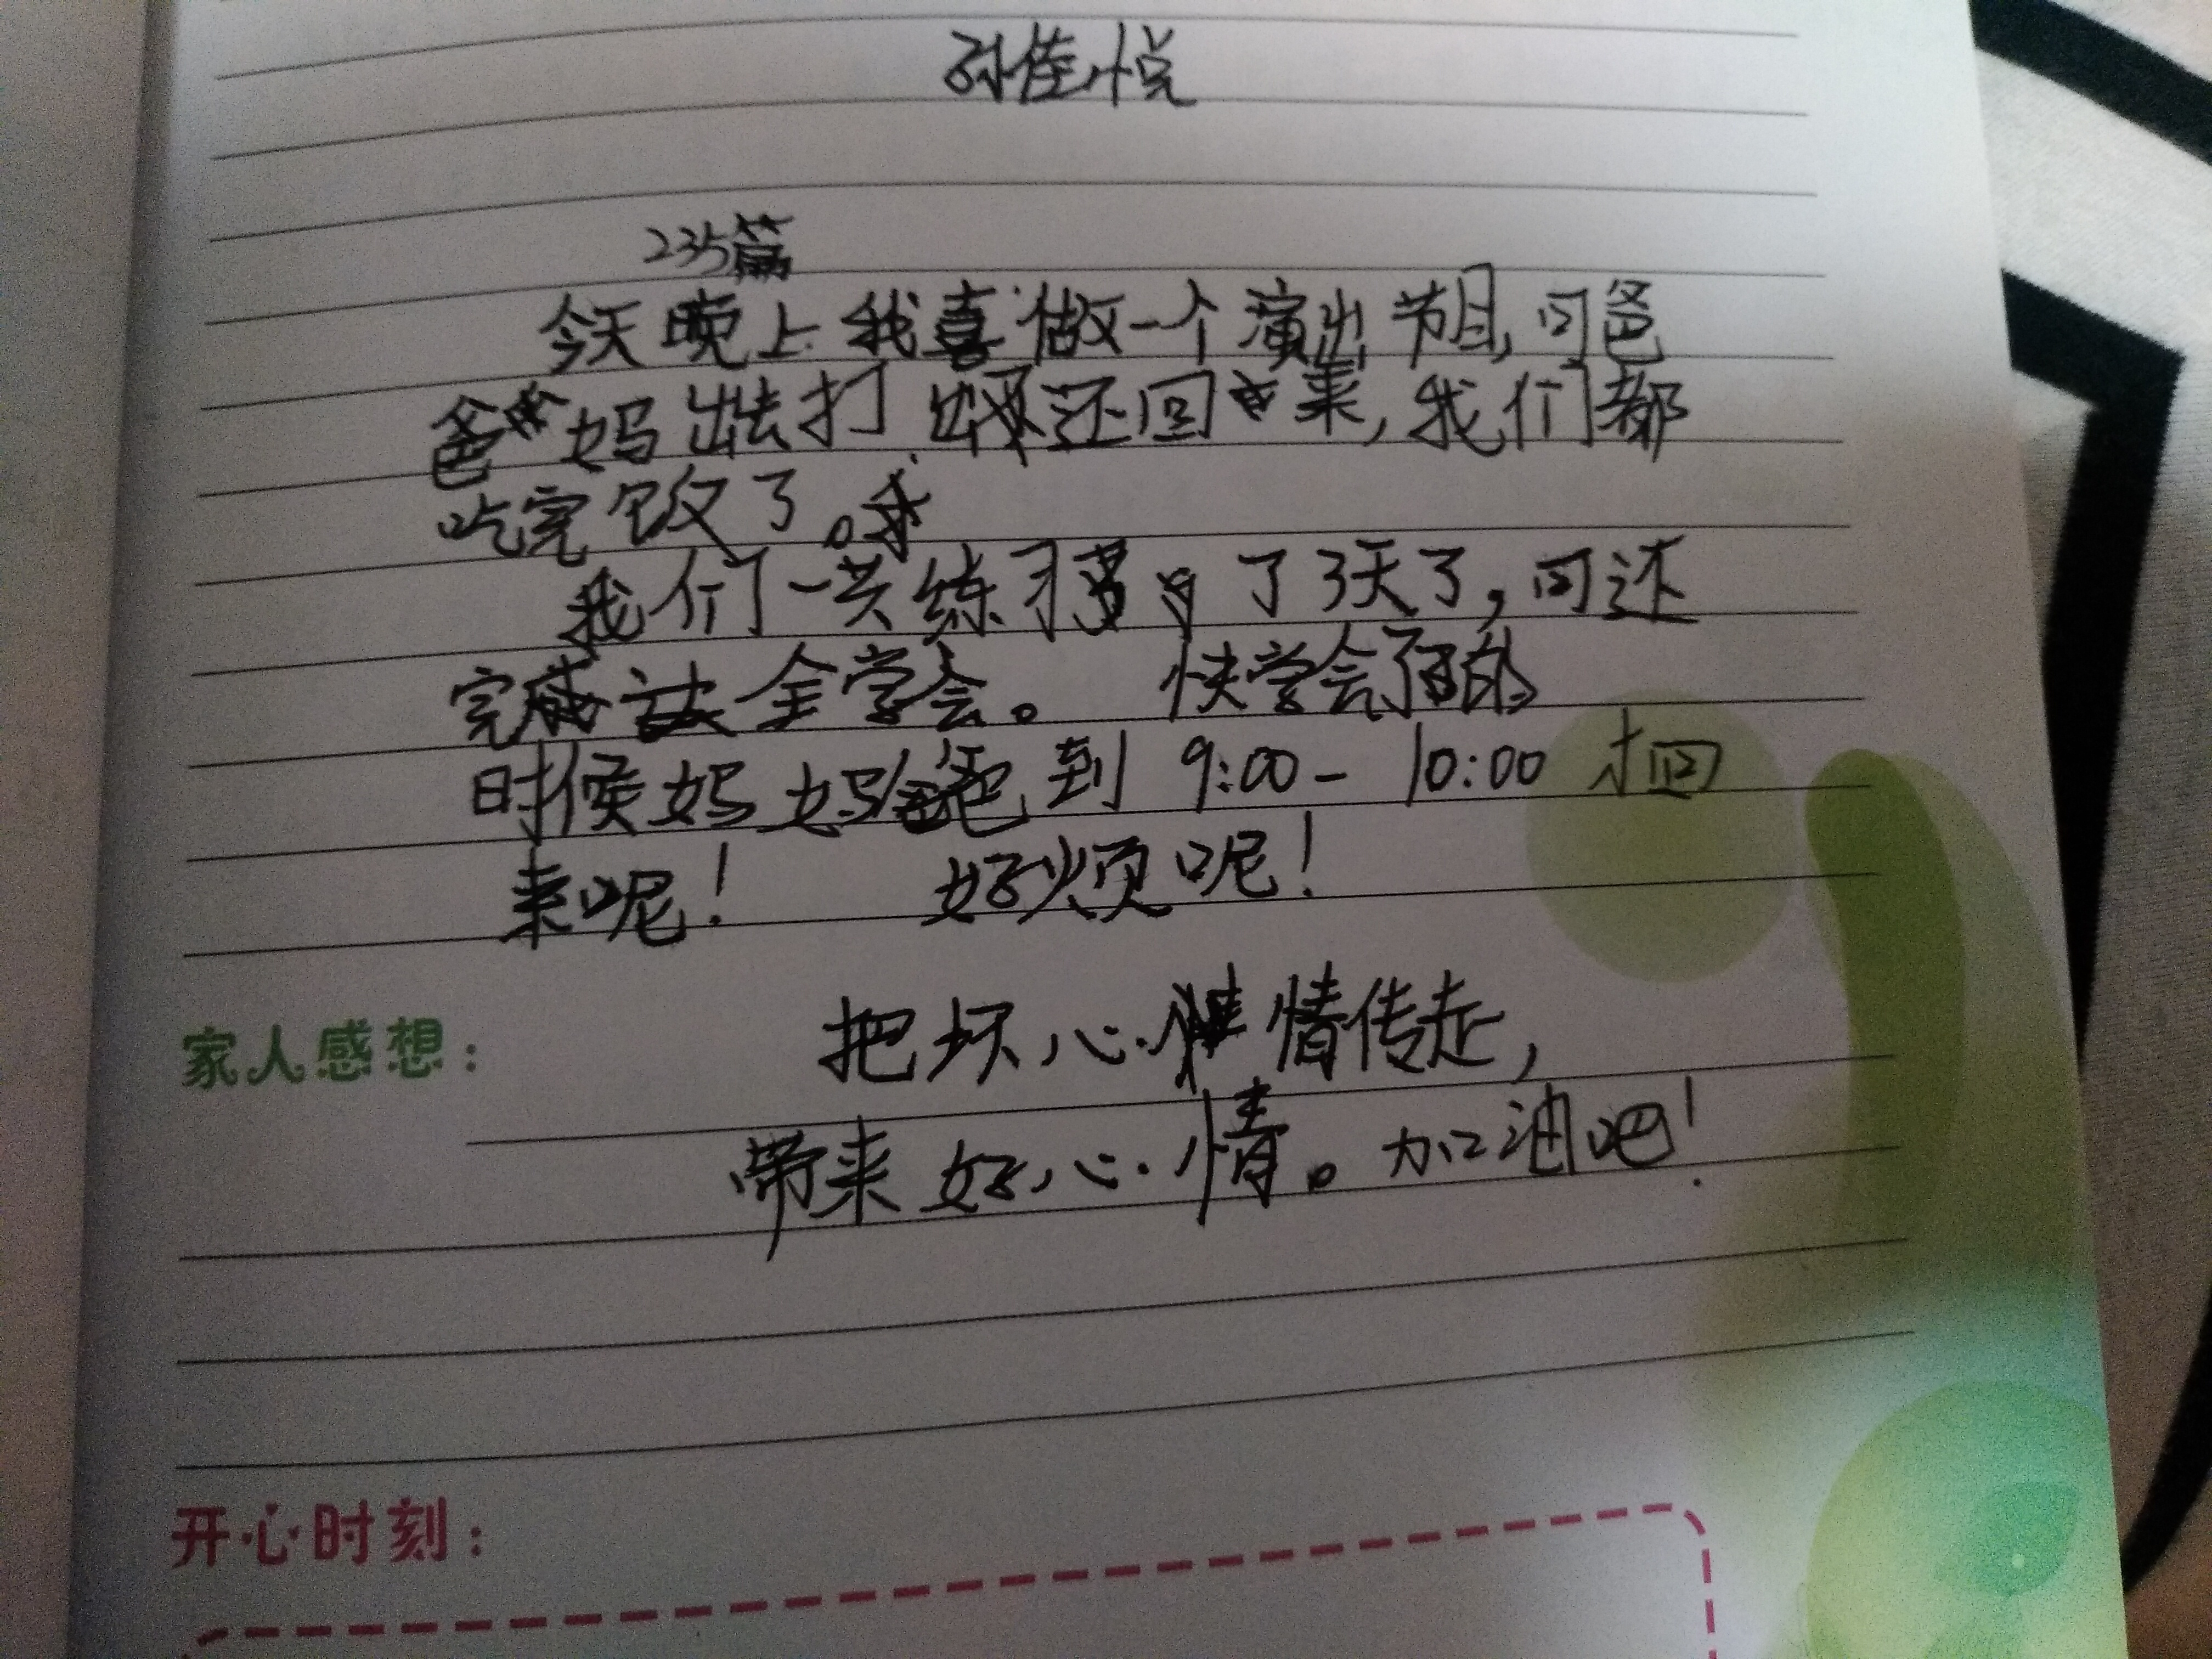 孙佳悦
235篇
今天晚上我喜做一个演出节目,可爸
爸妈出去打还回来,我们都
吃完饭了。
我们一共练习了3天了,可还
完全学会。 快学会了的
时候妈妈爸到 9:00- 10:00 才回
来呢! 好烦呢!
家人感想: 把坏心情传走,
带来好心情。加油吧!
开心时刻: